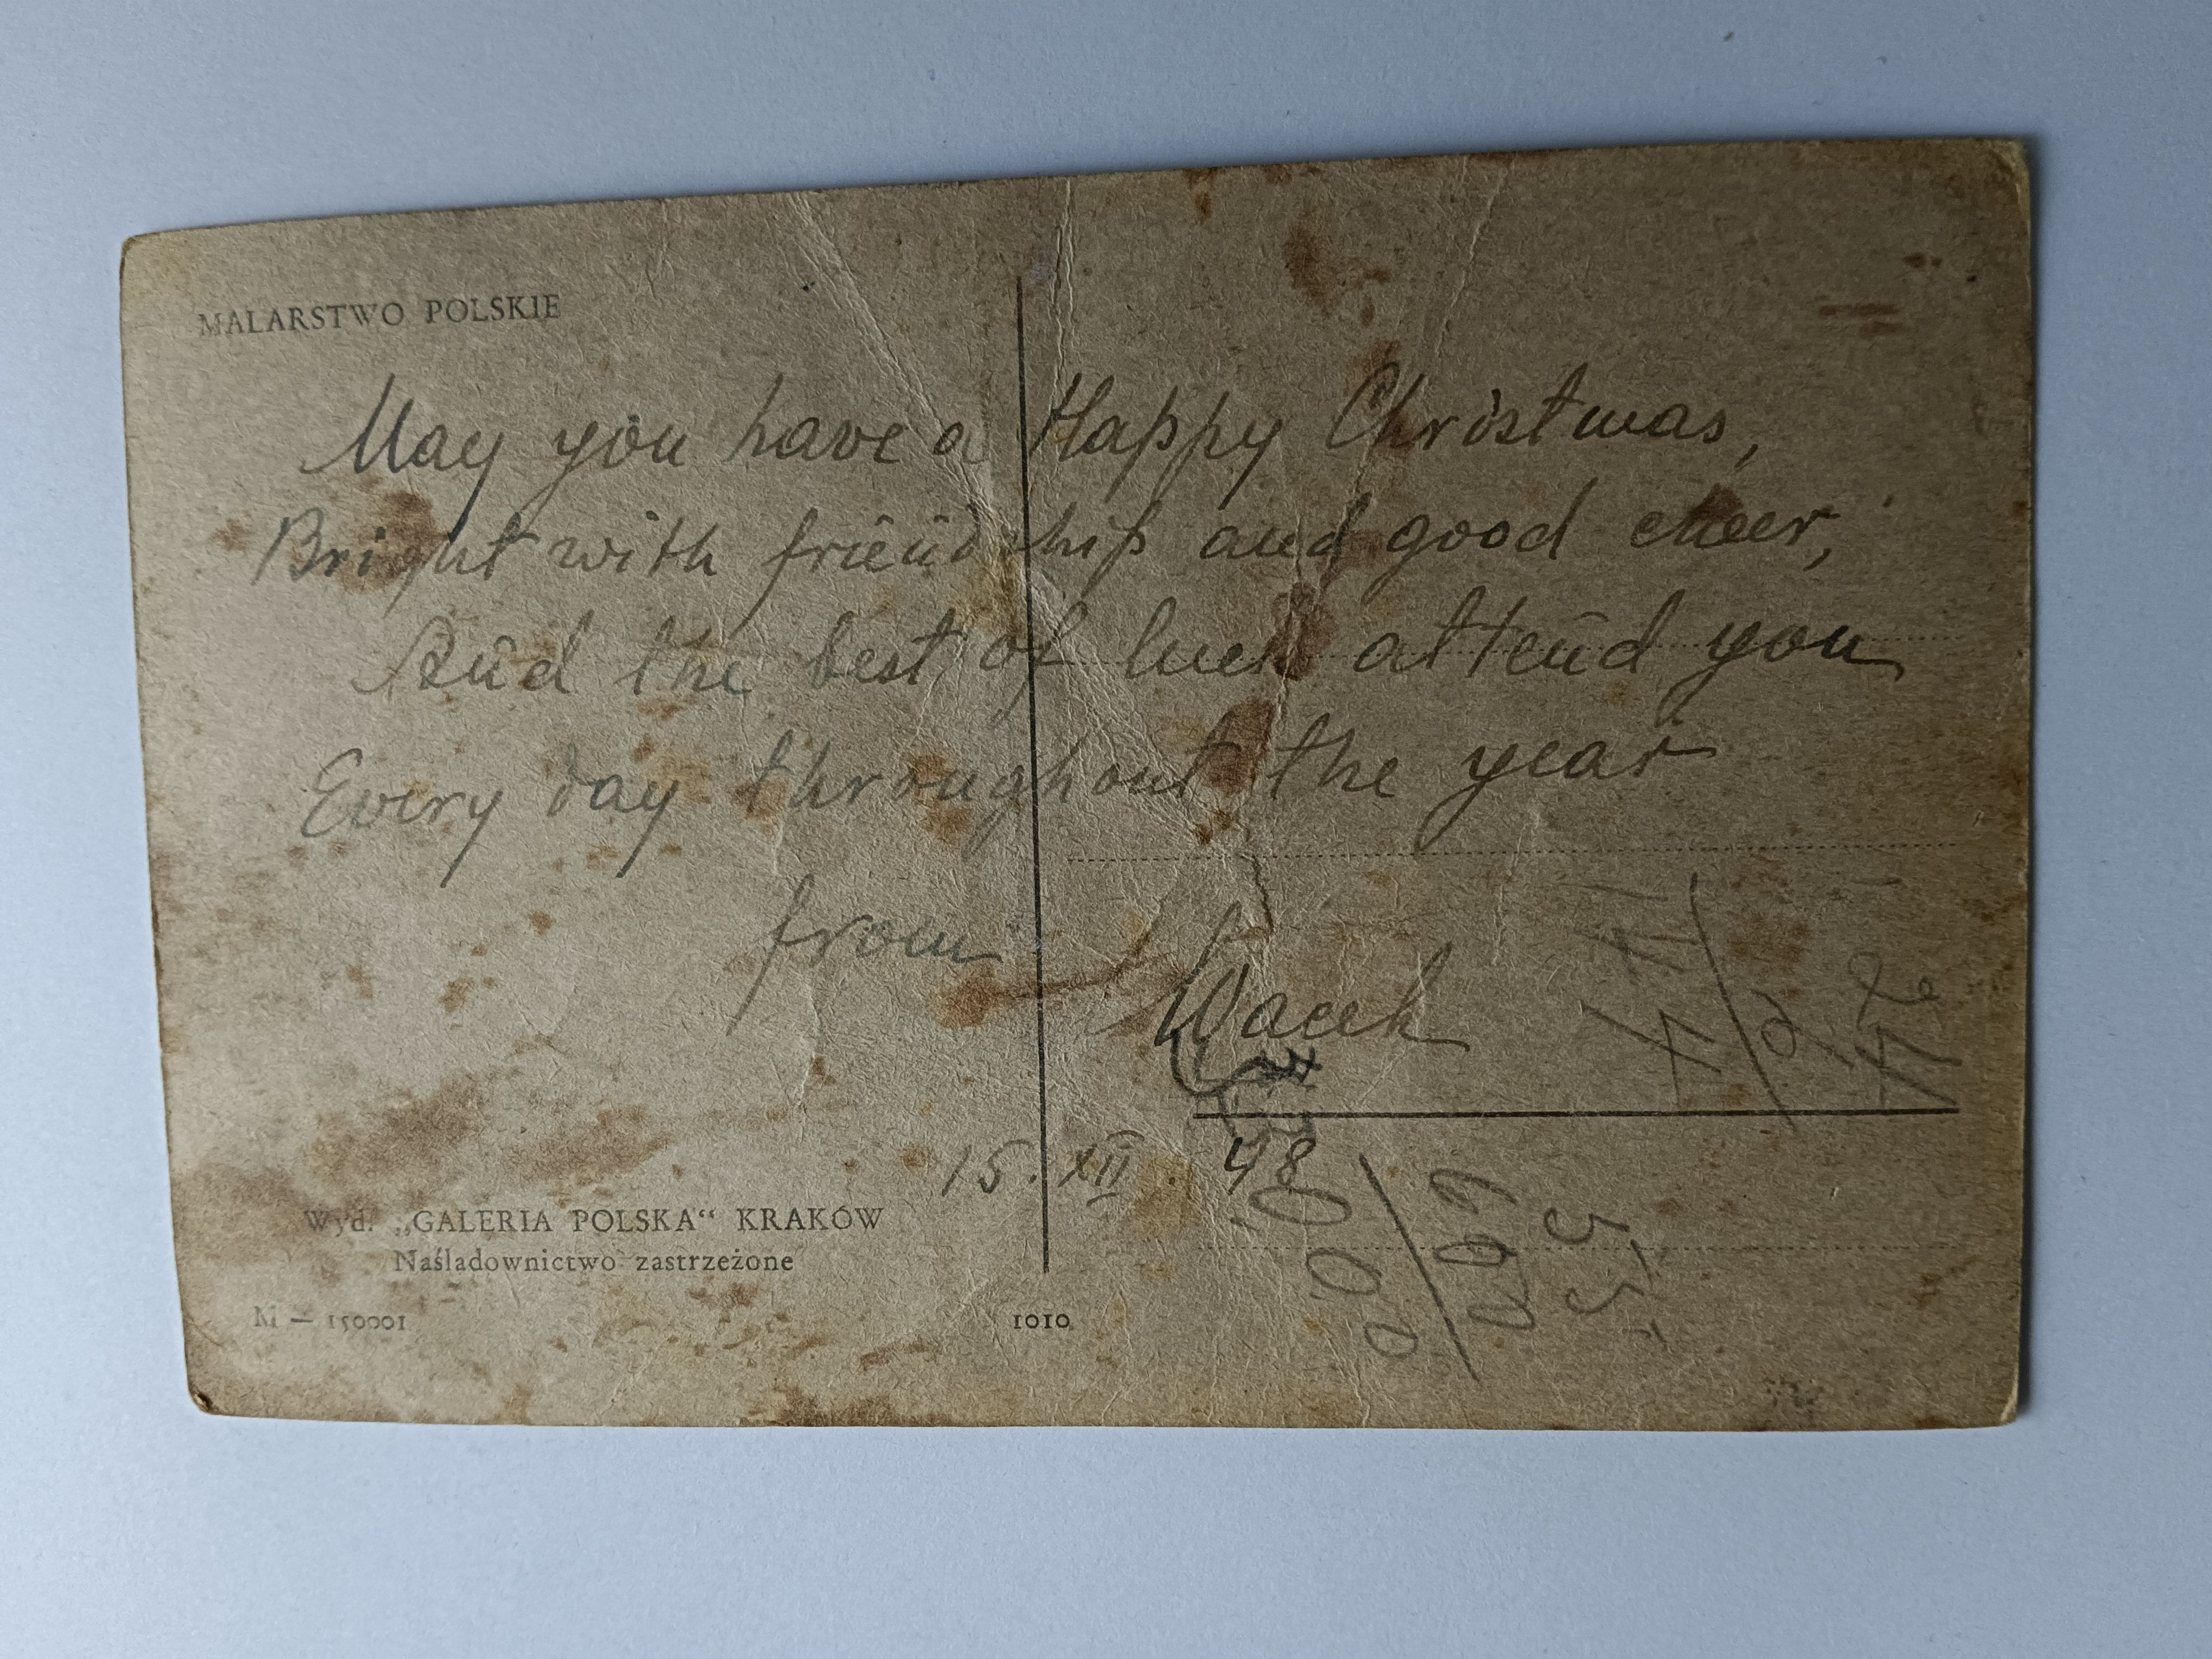 MALARSTWO POLSKIE
May you have a Happy Christmas,
Bright with friendship and good cheer,
And the best of luck attend you
Every day throughout the year
from
Wacek
15. XII. 48
Wyd. „GALERIA POLSKA“ KRAKÓW
Naśladownictwo zastrzeżone
M — 150001
1010